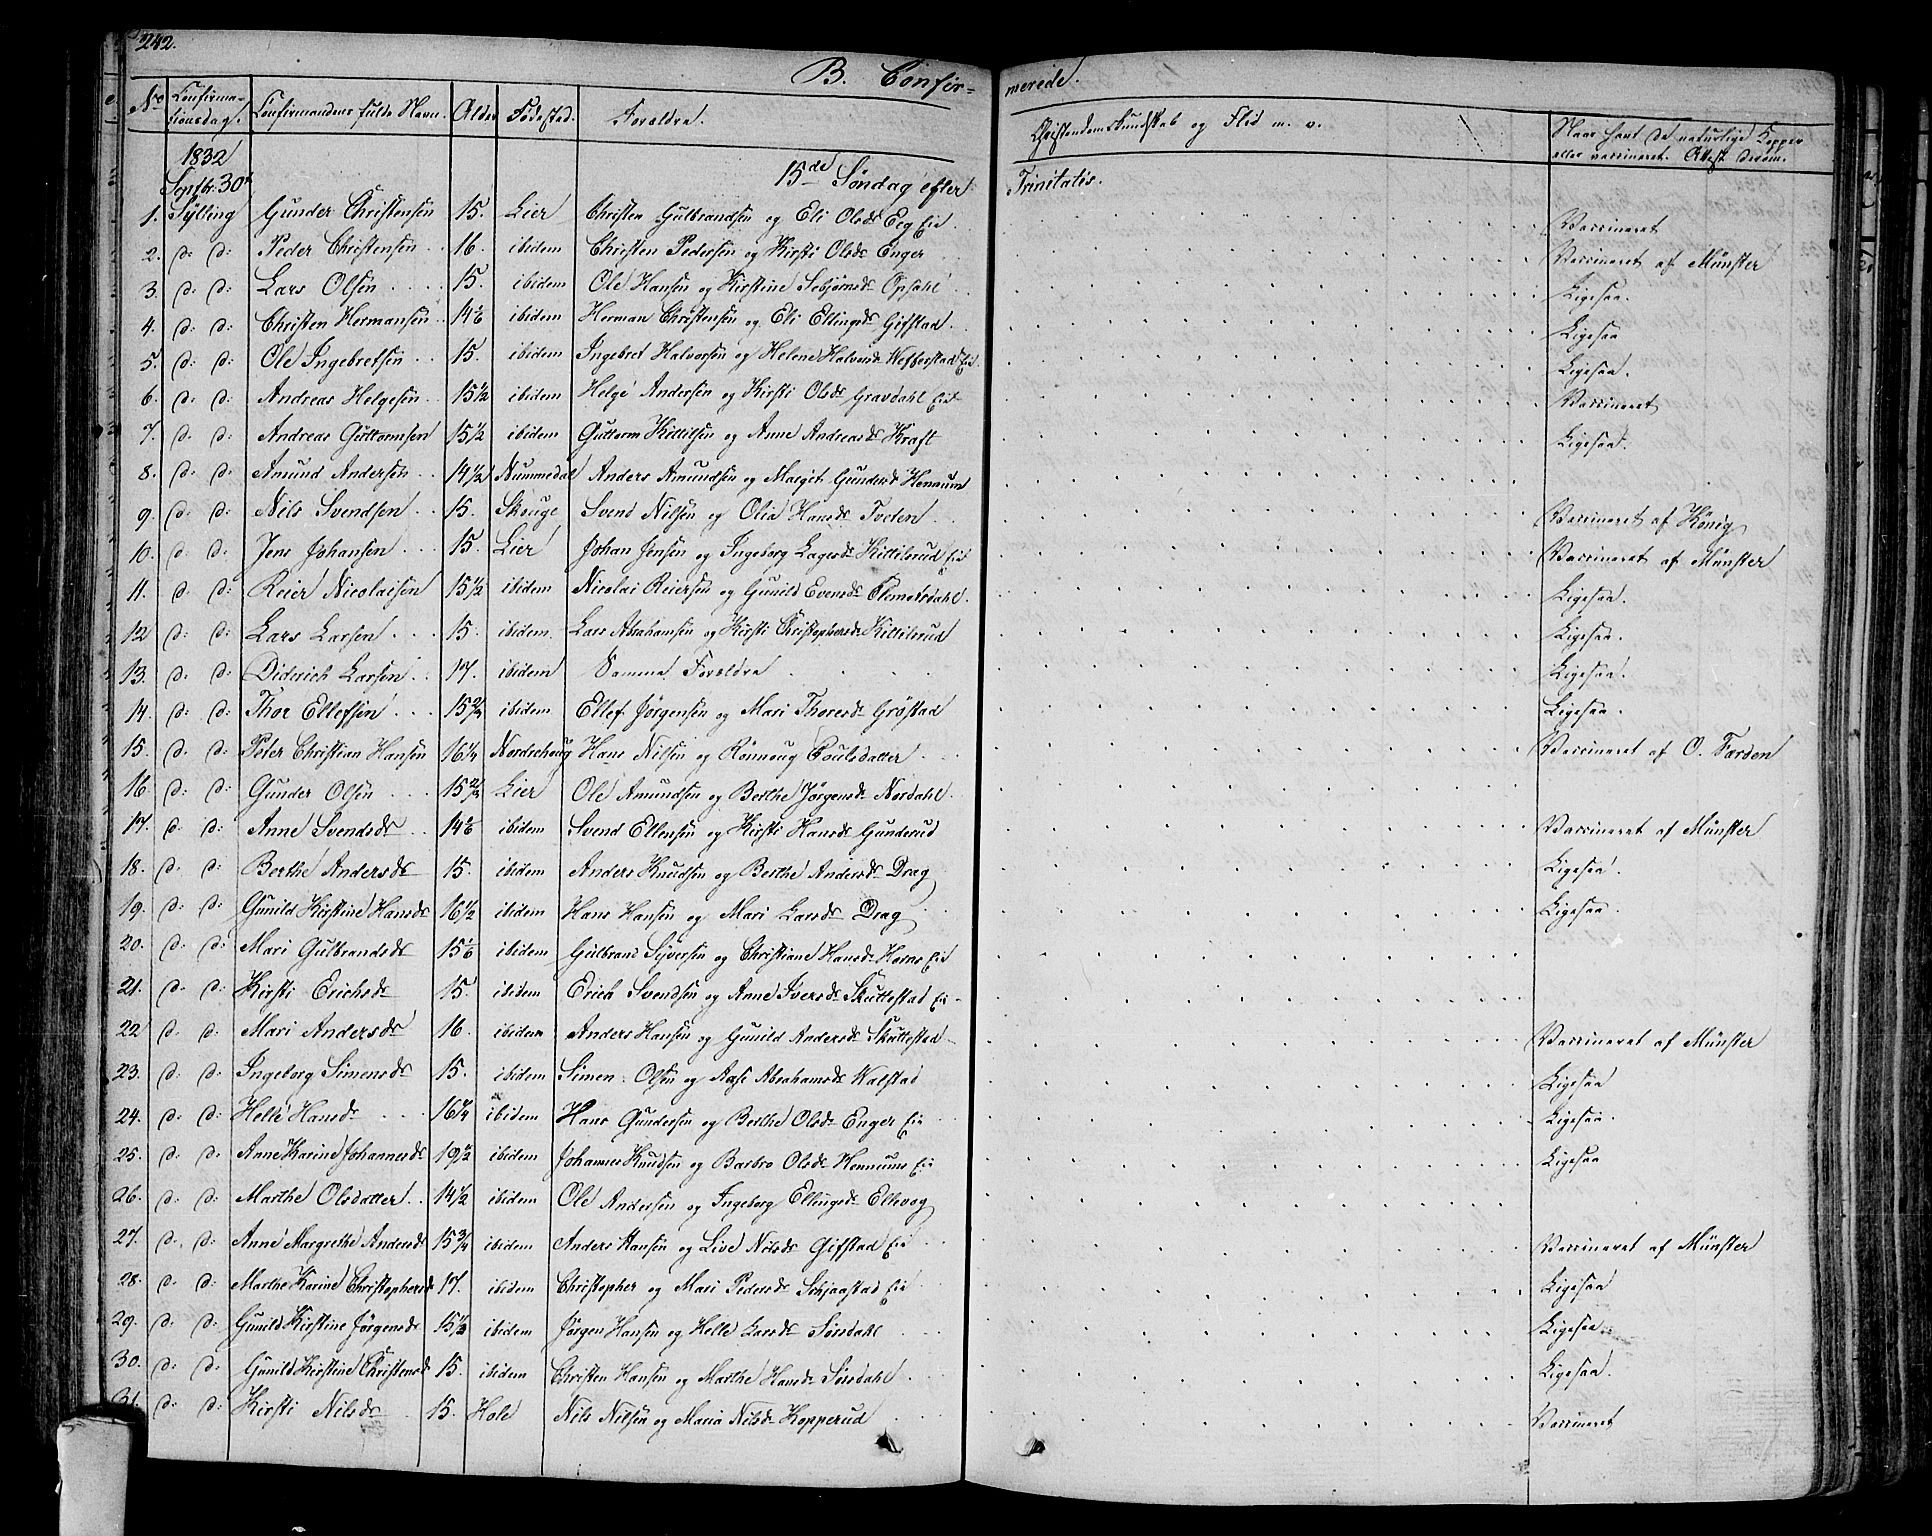 242.
B. Confirmerede.
No Confirmationsdag. Confirmandens fulde Navn. Alder Fødested. Forældre. Christendomskundskab og Flid m. v. Naar havt de naturlige Kopper eller vaccineret. Attest derom.
1832
Septbr. 30te 15de Søndag efter Trinitatis.
1. Sylling Gunder Christensen 15. Lier Christen Gulbrandsen og Eli Olsdr Eeg Eie Vaccineret
2. d: d: Peder Christensen 16. ibidem Christen Pedersen og Kirsti Olsdr Enger Vaccineret af Münster
3. d: d: Lars Olsen 15. ibidem Ole Hansen og Kirstine Sebjørnsdr Opsahl Ligesaa.
4. d: d: Christen Hermansen 14 ibidem Herman Christensen og Eli Ellingsdr Gifstad Ligesaa
5. d: d: Ole Ingebretsen 15. ibidem Ingebret Halvorsen og Helene Halvorsdr Wefferstad Eie. Ligesaa.
6. d: d: Andreas Helgesen 15½ ibidem Helge Andersen og Kirsti Olsdr Gravdahl Eie Vaccineret
7. d: d: Andreas Guttormsen 15½ ibidem Guttorm Kittilsen og Anne Andreasdr Kraft Ligesaa.
8. d: d: Amund Andersen 14½ Nummedal Anders Amundsen og Margit Gundersdr Henaum
9. d: d: Nils Svendsen 15. Skouge Svend Nilsen og Olia Hansdr Foden Vaccineret af König
10. d: d: Jens Johansen 15. Lier Johan Jensen og Ingeborg Lagesdr Kittilsrud Eie Vaccineret af Münster
11. d: d: Reier Nicolaisen 15½ ibidem Nicolai Reiersen og Gunild Evensdr Ligesaa.
12 d: d: Lars Larsen 15. ibidem. Lars Abrahamsen og Kirsti Christophersdr Kittilsrud Ligesaa.
13. d: d: Diderich Larsen 17. ibidem Samme Forældre Ligesaa.
14. d: d: Thor Ellefsen 15¾ ibidem Ellef Jørgensen og Mari Thoresdr Grøstad Ligesaa.
15. d: d: Peter Christian Hansen 16¼ Nordrehoug Hans Nilsen og Rønnoug Poulsdatter Vaccineret af O. Farden
16. d: d: Gunder Olsen 15¾ Lier Ole Amundsen og Berthe Jørgensdr Nordahl.
17. d: d: Anne Svendsdr 14 ibidem Svend Ellensen og Kirsti Hansdr Gunderud Vaccineret af Münster
18. d: d: Berthe Andersdr 15. ibidem Anders Knudsen og Berthe Andersdr Drag Ligesaa
19. d: d: Gunild Kirstine Hansdr 16½ ibidem Hans Hansen og Mari Larsdr Drag Ligesaa
20. d: d: Mari Gulbrandsdr 15 ibidem Gulbrand Syversen og Christiane Hansdr Horns Eie
21. d: d: Kirsti Erichsdr 15. ibidem Erich Svendsen og Anne Iversdr Skuttestad Eie
22 d: d: Mari Andersdr 16. ibidem Anders Hansen og Gunild Andersdr Skuttestad Vaccineret af Münster
23. d: d: Ingeborg Simensdr 15. ibidem Simen Olsen og Aase Abrahamsdr Walstad Ligesaa
24. d: d: Helle Hansdr 16¾ ibidem Hans Gundersen og Berthe Olsdr Enger Eie Ligesaa.
25. d: d: Anne Karine Johannesdr 19½ ibidem Johannes Knudsen og Barbro Olsdr Hennums Eie Ligesaa
26. d: d: Marthe Olsdatter 14½ ibidem Ole Andersen og Ingeborg Ellingsdr Ellevog
27. d: d: Anne Margrethe Andersdr 15¾ ibidem Anders Hansen og Live Nilsdr Gifstad Eie Vaccineret af Münster
28. d: d: Marthe Karine Christophersdr 17. ibidem Christopher og Mari Pedersdr Schjaastad Eie Ligesaa
29. d: d: Gunild Kirstine Jørgensdr 15⅓ ibidem Jørgen Hansen og Helle Larsdr Sørsdahl Ligesaa
30. d: d: Gunild Kirstine Christensdr 15. ibidem Christen Hansen og Marthe Hansdr Sørsdahl. Ligesaa.
31. d: d: Kirsti Nilsdr 15. Hole Nils Nilsen og Maria Nilsdr Kopperud Vaccineret